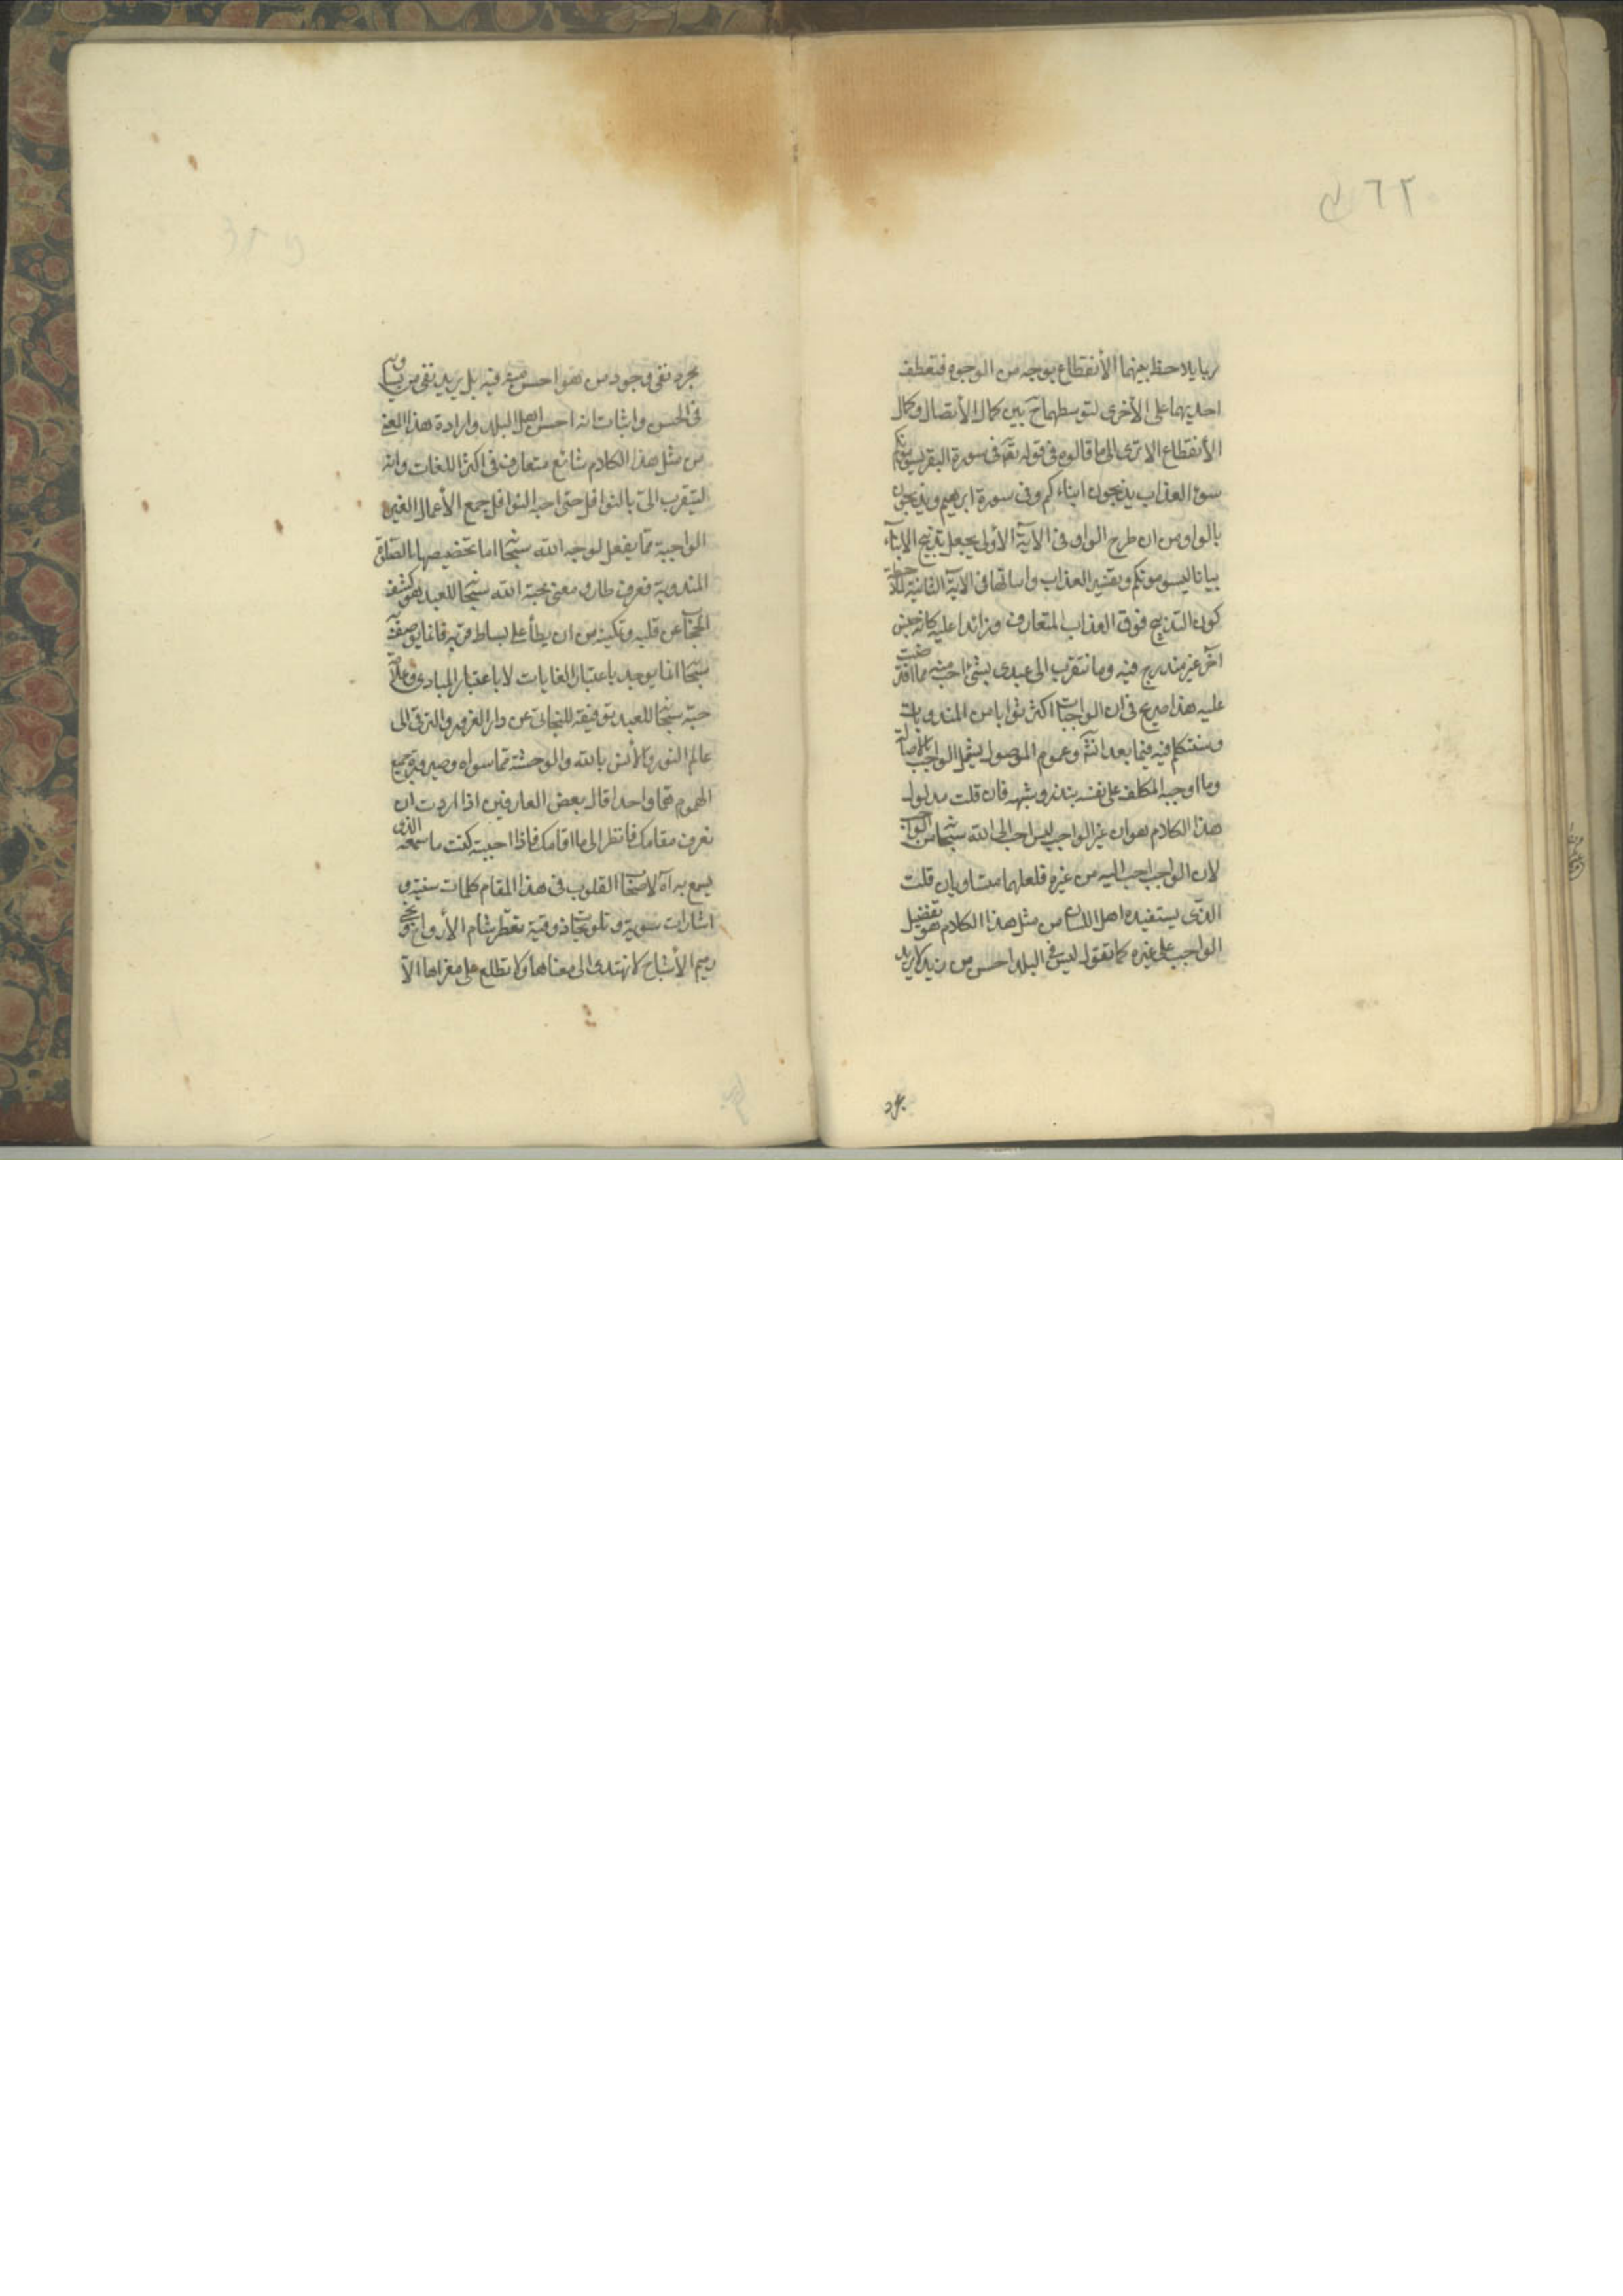 ٦٢
ربما يلاحظ بينهما الأنقطاع بوجه من الوجوه فتعطف
احديهما على الأخرى لتوسطهما ح بين كمال الأتصال وكمال
الأنقطاع الا ترى الى ما قالوه فى قوله تعه فى سورة البقرة يسومونكم
سوء العذاب يذبحون ابناءكم وفى سورة ابرهيم ويذبحون
بالواو من ان طرح الواو فى الاية الأولى يجعل تذبيح الابناء
بيانا ليسومونكم وتفسير العذاب واثباتها فى الاية الثانية لملاحظة
كون التذبيح فوق العذاب المتعارف وزائدا عليه كانه جنس
آخر غير مندرج فيه وما تقرب الى عبدى بشئ احب مما افترضت
عليه هذا صريح فى ان الواجبات اكثر ثوابا من المندوبات
وسنتكلم فيه فيما بعد انشه وعموم الموصول يشمل الواجب بالاصالة
وما اوجبه المكلف على نفسه بنذر وشبهه فان قلت مدلول
هذا الكلام هو ان غير الواجب ليس احب الى الله سبحا من الواجب
لان الواجب احب اليه من غيره فلعلهما متساويان قلت
الذى يستفيده اهل اللسان من مثل هذا الكلام هو تفضيل
الواجب على غيره كما تقول ليس فى البلد احسن من زيد لا يريد
مجرد نفى وجود من هو احسن منه فيه بل يريد نفى من يساويه
فى الحسن واثبات انه احسن اهل البلد وارادة هذا المعنى
من مثل هذا الكلام شائع متعارف فى اكثر اللغات وانه
ليتقرب الى بالنوافل حتى احبه النوافل جمع الأعمال الغير
الواجبة مما يفعل لوجه الله سبحا اما تخصيصها بالصلوة
المندوبة فعرف طار ومعنى محبة الله سبحا للعبد هو كشف
الحجاب عن قلبه وتمكينه من ان يطأ على بساط قربه فان ما يوصف به
سبحا انما يوجد باعتبار الغايات لا باعتبار المبادى وعلامة
حبه سبحا للعبد توفيقه للتجافى عن دار الغرور والترقى الى
عالم النور والأنس بالله والوحشة مما سواه وصيرورة جميع
الهموم هما واحدا قال بعض العارفين اذا اردت ان
تعرف مقامك فانظر الى ما اقامك فاذا احببته كنت سمعه الذى
يسمع به آه لاصحا القلوب فى هذا المقام كلمات سنية و
اشارات سرية وتلويحات ذوقية تعطر مشام الأرواح وتحيى
رميم الأشباح لا يهتدى الى معناها ولا يطلع على مغزاها الا